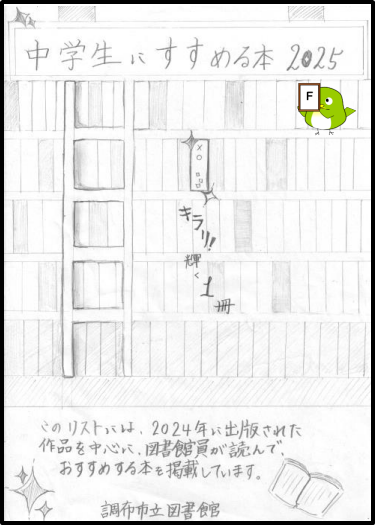 中学生にすすめる本 2025
F
キラリ!
輝く
1
冊
このリストには、2024年に出版された
作品を中心に、図書館員が読んで、
おすすめする本を掲載しています。
調布市立図書館